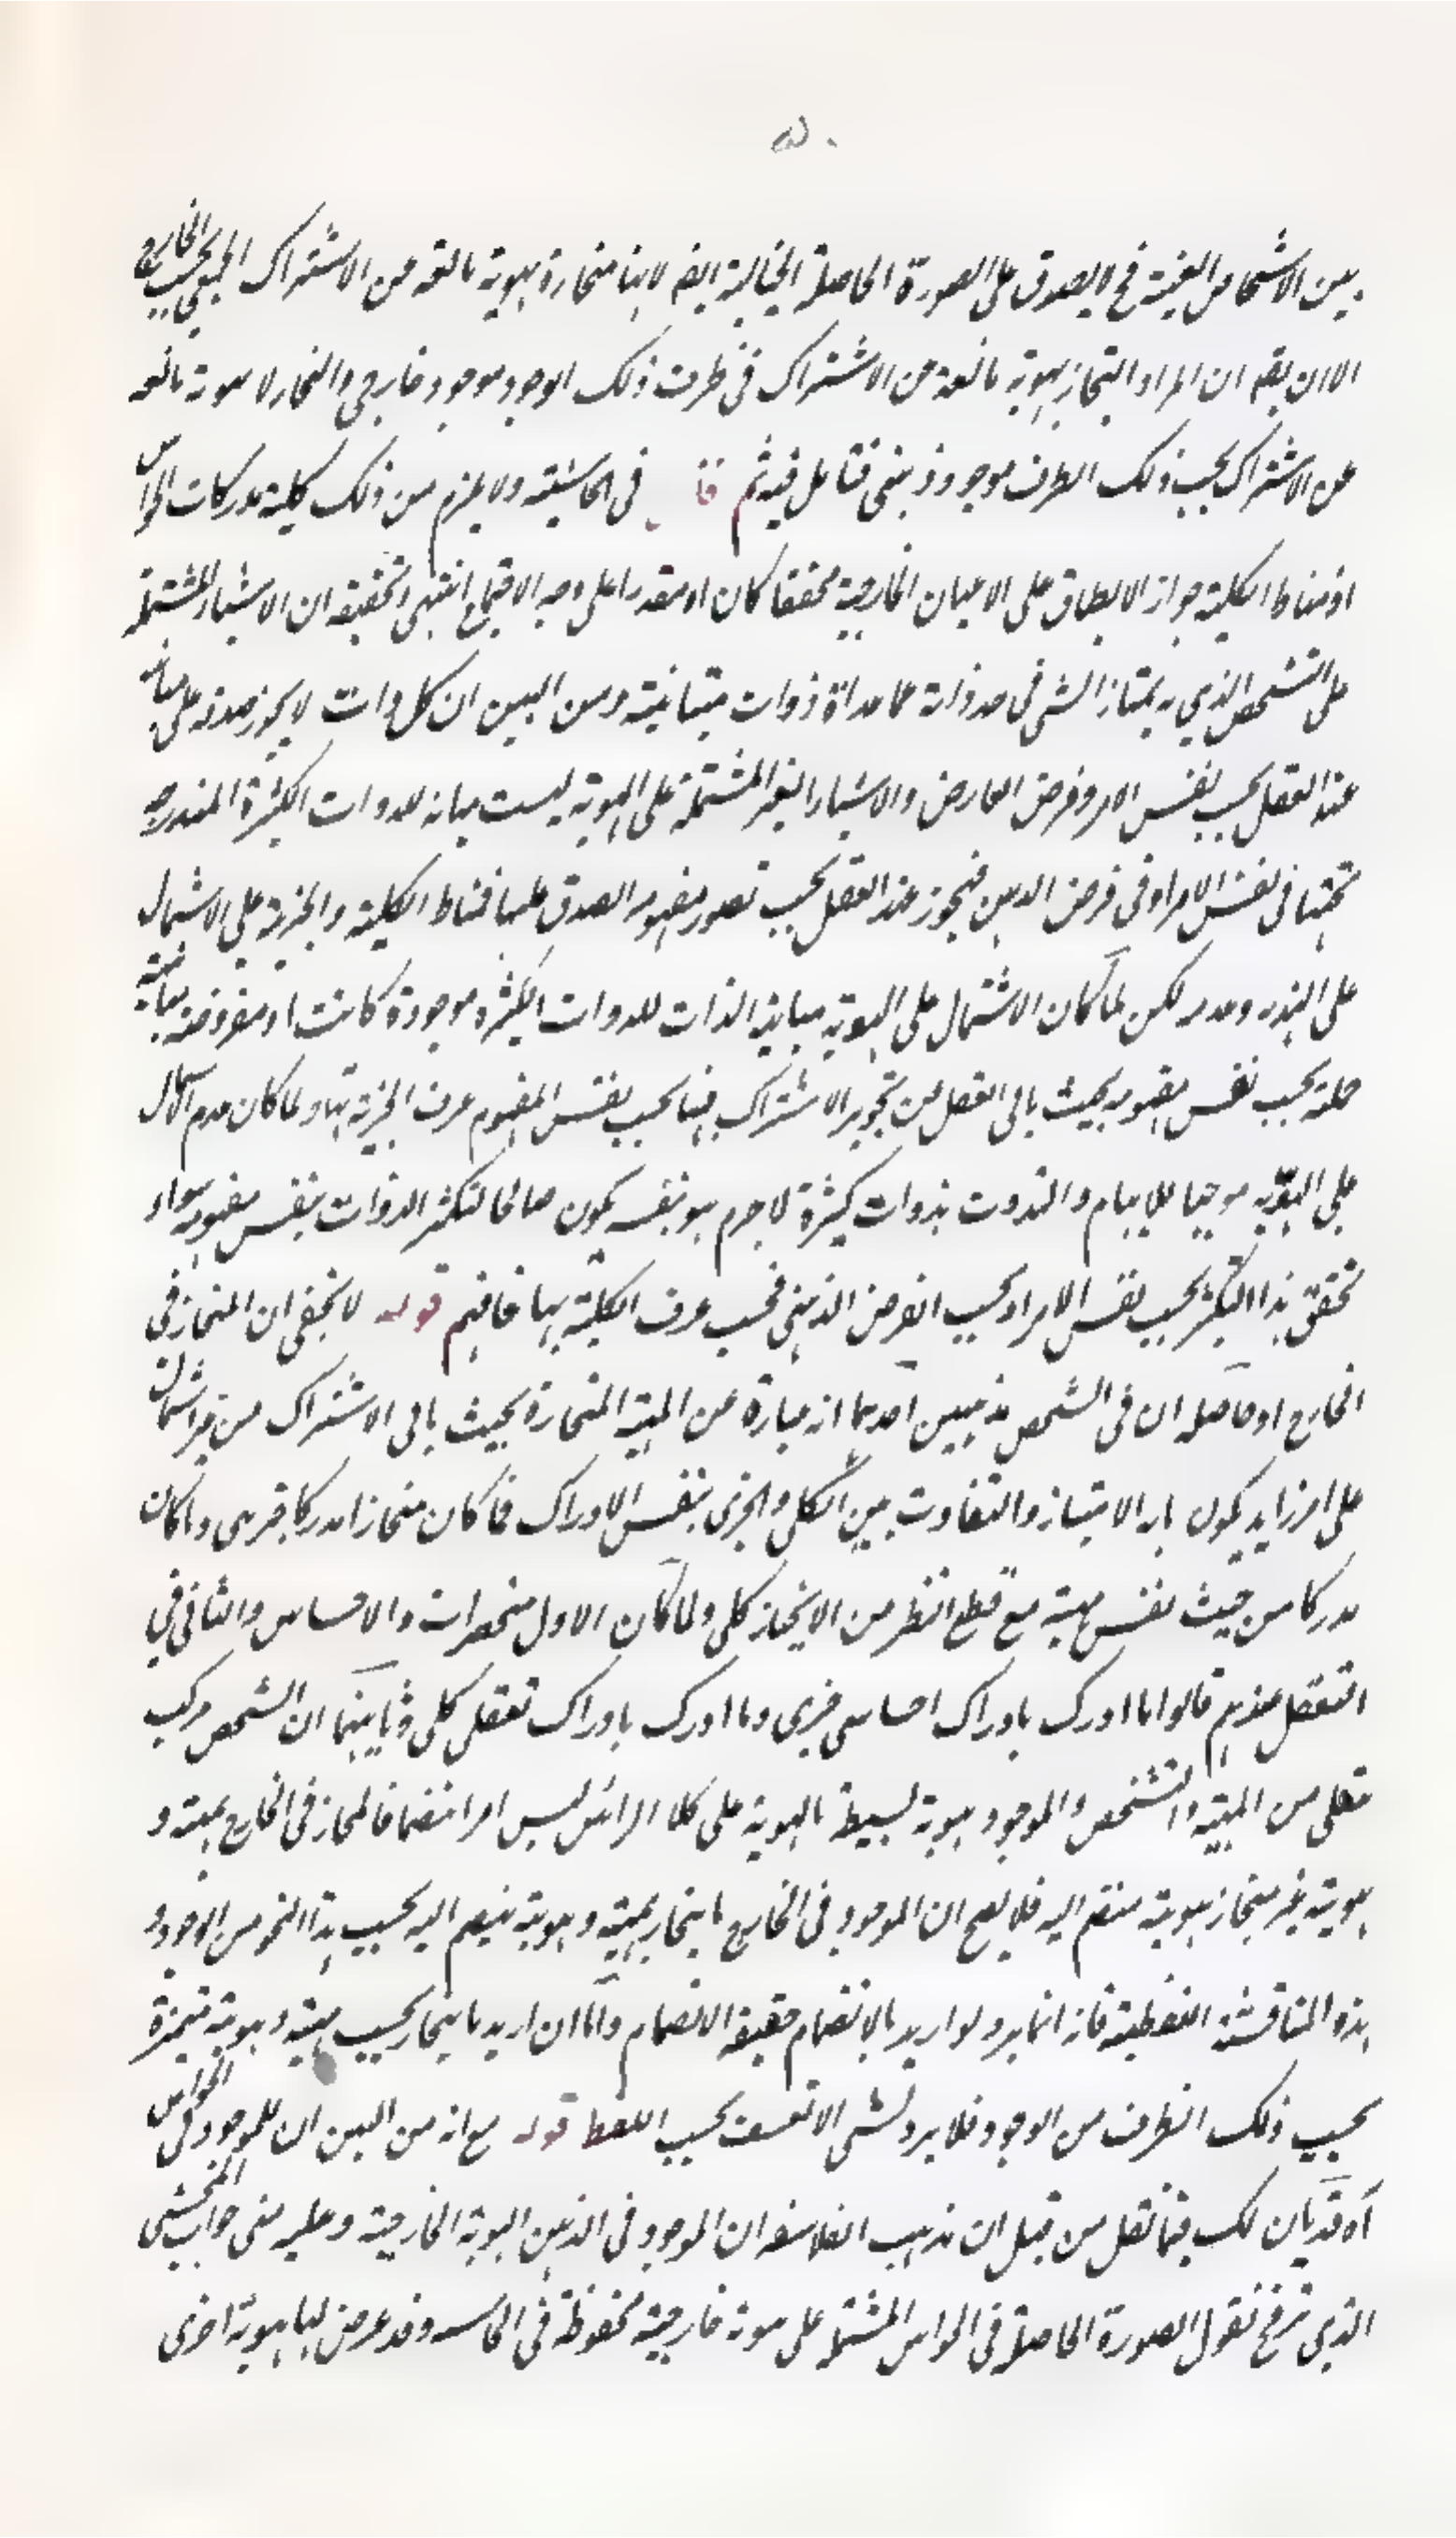 ٥٠
بين الاشخاص العينية فح لا يصدق على الصورة الحاصلة الخيالية ايضا لانها منحازة بهوية مانعة عن الاشتراك الحقيقي بحسب الخارج
الا ان يقم ان المراد التحاز بهوية مانعة من الاشتراك فى ظرف ذلك الوجود موجود خارجى والمنحاز لا بهوية مانعة
عن الاشتراك بحسب ذلك الظرف موجود ذهنى فتامل فيه ثم قال فى الحاشية ولا يلزم من ذلك كلية مدركات الحواس
اذ مناط الكلية جواز الانطباق على الاعيان الخارجية محققا كان او مقدرا على وجه الاجتماع انتهى وتحقيقه ان الاشياء المشتملة
على التشخص الذي به يمتاز الشى فى حد ذاته عما عداه ذوات متباينة ومن البين ان كل ذات لا يجوز صدقه على مباينه
عند العقل بحسب نفس الامر وفرض العارض والاشياء الغير المشتملة على الهوية ليست مباينة للذوات الكثيرة المندرجة
تحتها فى نفس الامر او فى فرض الذهن فيجوز عند العقل بحسب تصور مفهومه الصدق عليها فمناط الكلية والجزئية على الاشتمال
على الهذية وعدمه لكن لما كان الاشتمال على الهوية مباينة الذات للذوات الكثيرة موجودة كانت او مفروضة مباينة
حملة بحسب نفس مفهومه بحيث يابى العقل من تجويز الاشتراك فيها بحسب نفس المفهوم عرف الجزئية بها ولما كان عدم الاشتمال
على الهوية موجبا للابهام والتذوت بذوات كثيرة لا جرم هو بنفسه يكون صالحا لتكثر الذوات بنفس مفهومه سواء
تحقق هذا التكثر بحسب نفس الامر او بحسب الفرض الذهنى فحسب عرف الكلية بها فافهم قوله لا يخفى ان المنحاز فى
الخارج اه حاصله ان فى الشخص مذهبين احدهما انه عبارة عن المهية المنحازة بحيث يابى الاشتراك من غير اشتمال
على امر زايد يكون بابه الامتياز والتفاوت بين الكلى والجزئ بنفس الادراك فما كان منحازا مدركا جزى وما كان
مدركا من حيث نفس مهية مع قطع النظر من الانحياز كلى ولما كان الاول منحصرات والاحساس والثانى فى
التعقل عندهم قالوا ما ادرك بادراك احساسى جزى وما ادرك بادراك تعقلى كلى وثانيهما ان الشخص مركب
عقلى من المهية والتشخص والموجود هوية بسيطة فالهوية على كلا الرائين ليس امرا منضما فالمنحاز فى الخارج بمهية و
هوية غير منحاز بهوية منضم اليه فلا يصح ان الموجود فى الخارج ما ينحاز بمهية وهوية ينضم اليه بحسب هذا النحو من الوجود و
هذه المناقشة اللفظية فانه انما يرد لو اريد بالانضمام حقيقة الانضمام واما ان اريد ما ينحاز بحسب مهية وهوية متميزة
بحسب ذلك الظرف من الوجود فلا يرد لشى الا تعسف بحسب اللفظ قوله مع انه من البين ان الموجود فى الحواس
آه قد بان لك فيما نقل من قبل ان مذهب الفلاسفة ان الموجود فى الذهن الهوية الخارجية وعليه مبنى جواب المحشى
الذى مر فح نقول الصورة الحاصلة فى الحواس المشتملة على هوية خارجية محفوظة فى الحاسة وقد عرض لها هوية اخرى